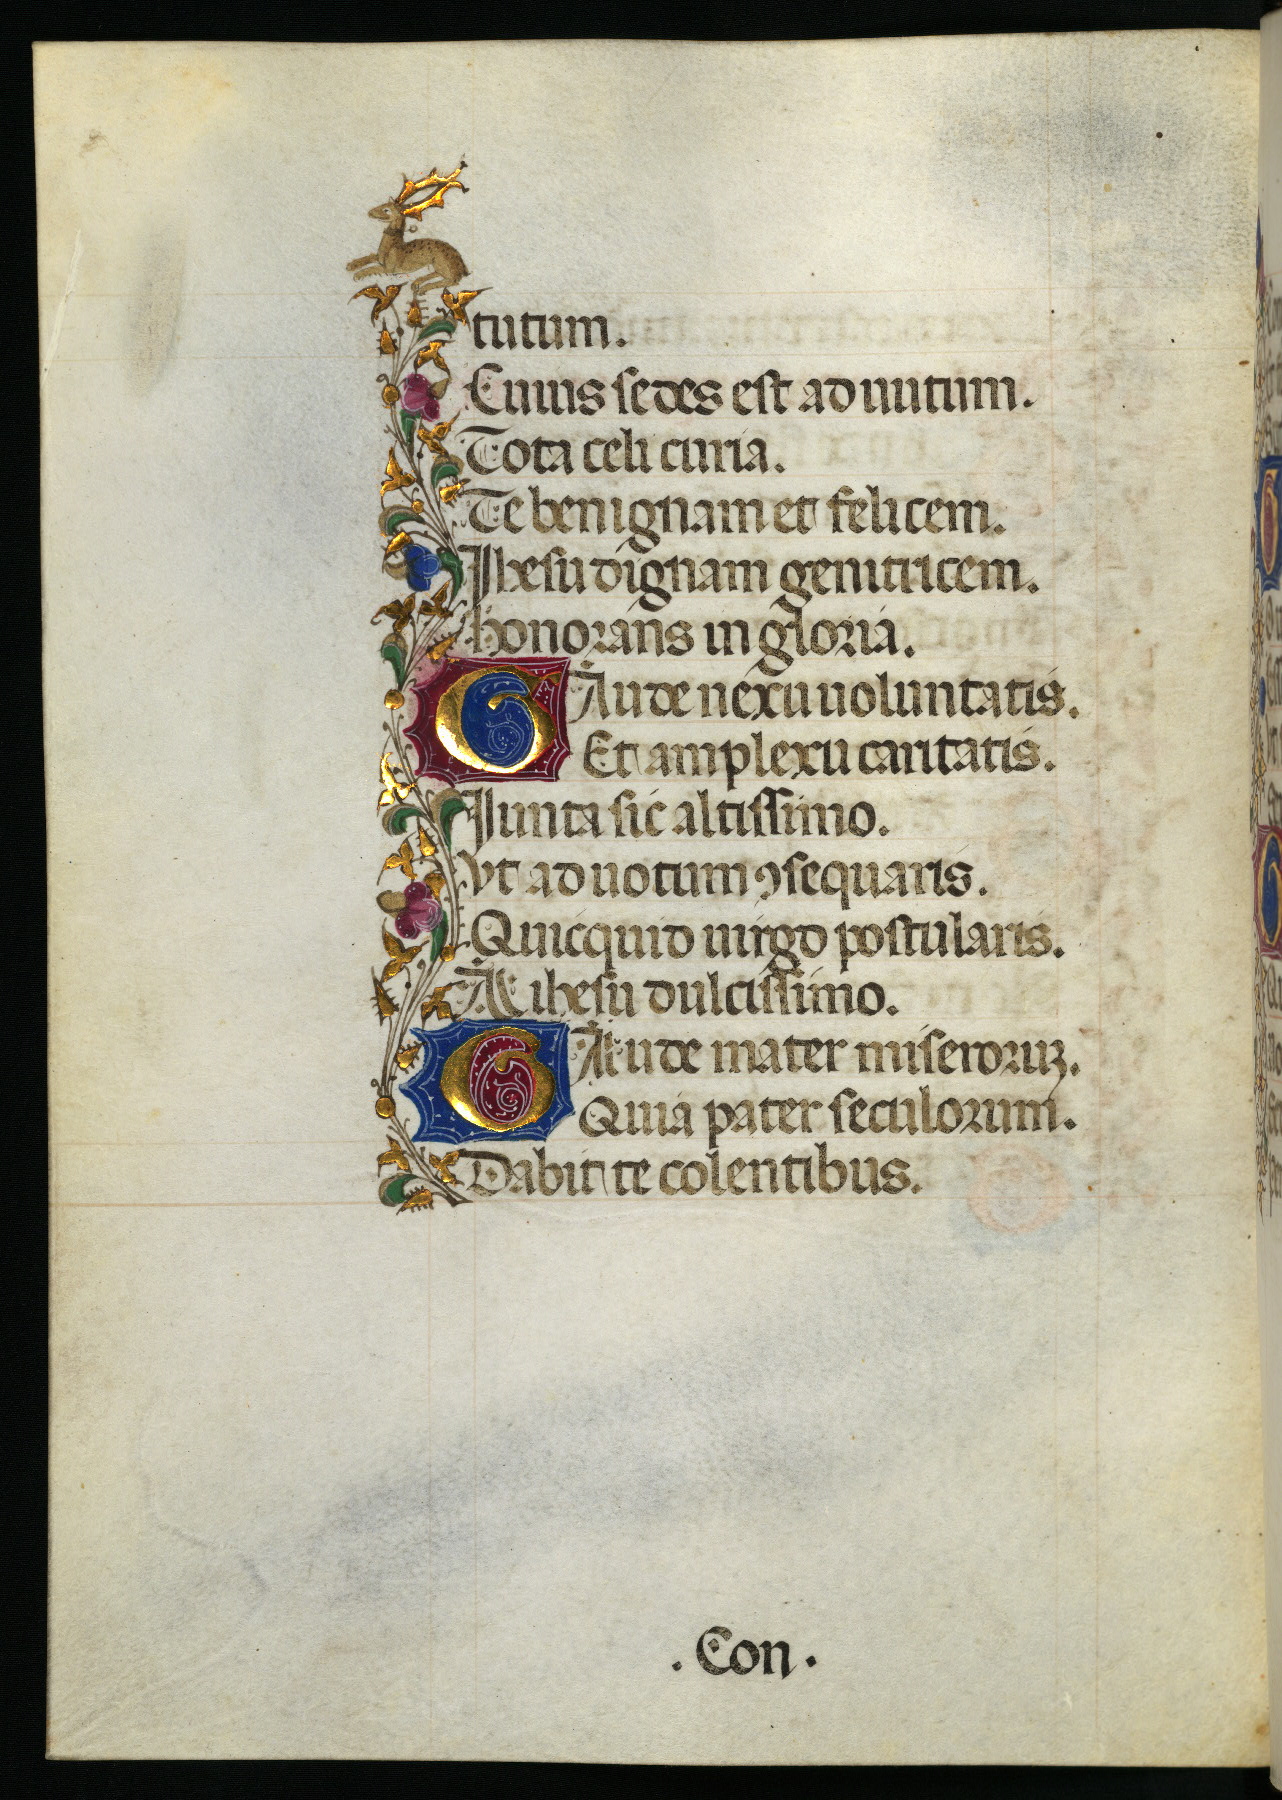 tutum.
Cuius sedes est ad nutum.
Tota celi curia.
Te benignam et felicem.
Ihesu dignam genitricem.
honorans in gloria.
GAude nexu uoluntatis.
Et amplexu caritatis.
Iunta sic altissimo.
Vt ad uotum ꝯsequaris.
Quicquid uirgo postularis.
A ihesu dulcissimo.
GAude mater miseroruꝫ.
Quia pater seculorum.
Dabit te colentibus.
. Con .